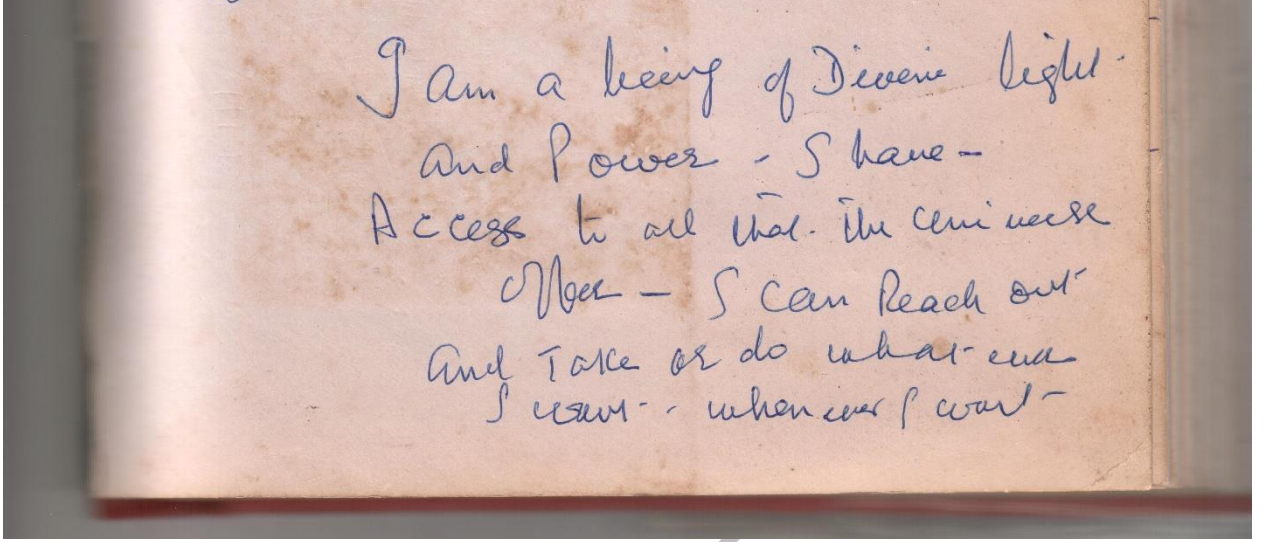 I am a being of Divine light.
and Power - I have -
Access to all that. The universe
offer - I can Reach out
and Take or do what ever
I want - - when ever I want -